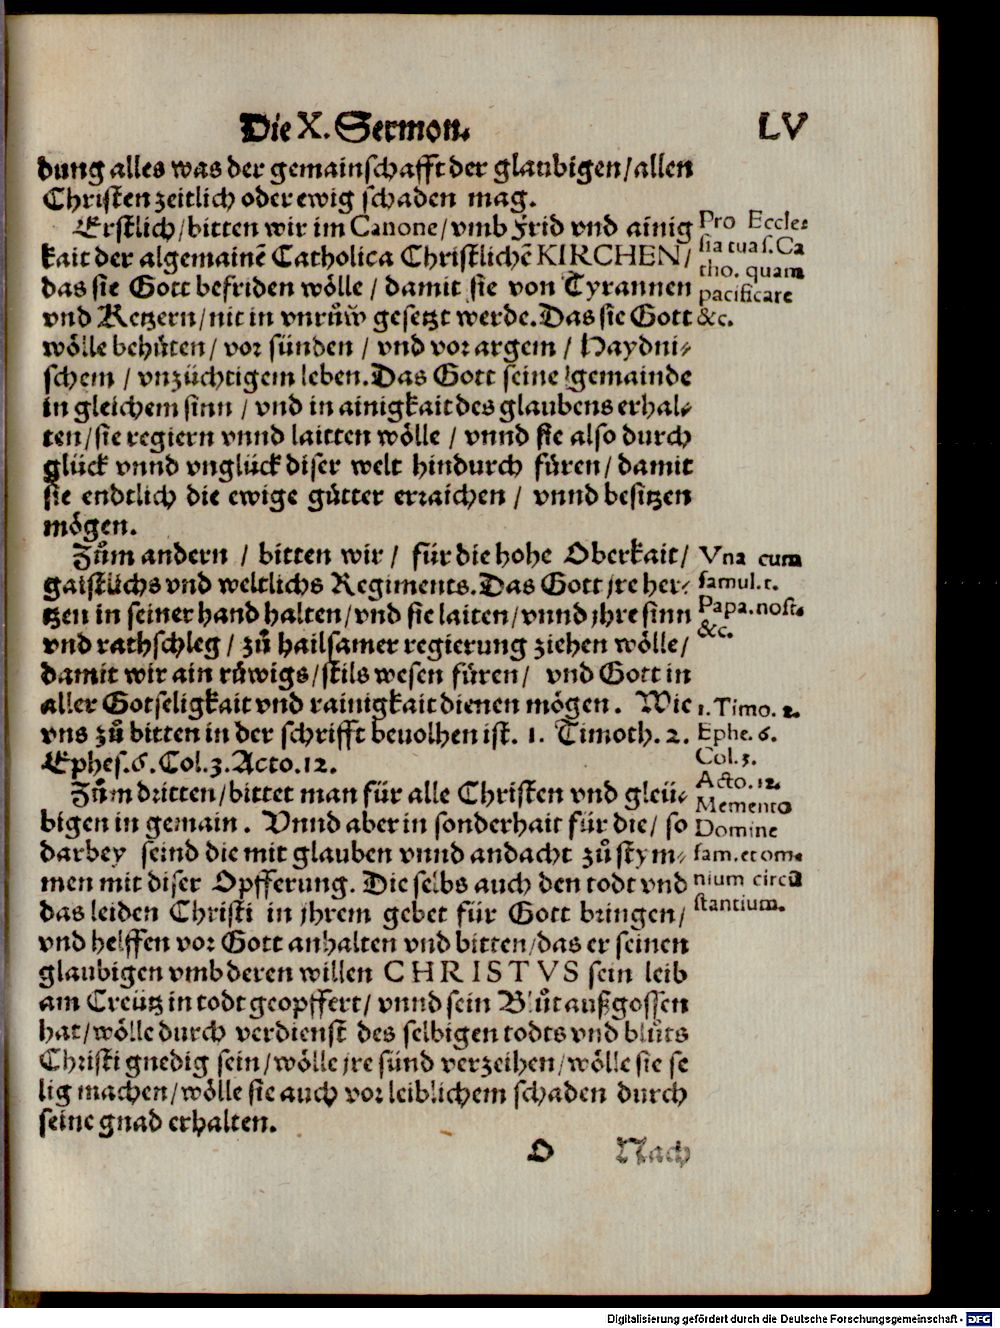 Die X. Sermon. LV
dung alles was der gemainschafft der glaubigen/allen
Christen zeitlich oder ewig schaden mag.
Erstlich/bitten wir im Canone/vmb Frid vnd ainig
kait der algemainẽ Catholica Christlichẽ KIRCHEN/
das sie Gott befriden wölle / damit sie von Tyrannen
vnd Ketzern/nit in vnrůw gesetzt werde. Das sie Gott
wölle behüten/ vor sünden / vnd vor argem / Haydni-
schem / vnzüchtigem leben. Das Gott seine gemainde
in gleichem sinn / vnd in ainigkait des glaubens erhal-
ten/sie regiern vnnd laitten wölle / vnnd sie also durch
glück vnnd vnglück diser welt hindurch füren/ damit
sie endtlich die ewige gütter erraichen / vnnd besitzen
mögen.
Pro Eccle-
sia tua s. Ca
tho. quam
pacificare
&c.
Zům andern / bitten wir / für die hohe Oberkait/
gaistlichs vnd weltlichs Regiments. Das Gott jre her-
tzen in seiner hand halten/vnd sie laiten/vnnd jhre sinn
vnd rathschleg / zů hailsamer regierung ziehen wölle/
damit wir ain růwigs/stils wesen füren/ vnd Gott in
aller Gotseligkait vnd rainigkait dienen mögen. Wie
vns zů bitten in der schrifft beuolhen ist. 1. Timoth. 2.
Ephes. 6. Col. 3. Acto. 12.
Vna cum
famul. t.
Papa. nost.
&c.
1. Timo. 2.
Ephe. 6.
Col. 3.
Acto. 12.
Zům dritten/bittet man für alle Christen vnd gleü-
bigen in gemain. Vnnd aber in sonderhait für die/ so
darbey seind die mit glauben vnnd andacht zů stym-
men mit diser Opfferung. Die selbs auch den todt vnd
das leiden Christi in jhrem gebet für Gott bringen/
vnd helffen vor Gott anhalten vnd bitten/das er seinen
glaubigen vmb deren willen CHRISTVS sein leib
am Creütz in todt geopffert/ vnnd sein Blůt außgossen
hat/wölle durch verdienst des selbigen todts vnd blůts
Christi gnedig sein/wölle jre sünd verzeihen/wölle sie se
lig machen/wölle sie auch vor leiblichem schaden durch
seine gnad erhalten.
Memento
Domine
fam. et om-
nium circũ
stantium.
O Nach
Digitalisierung gefördert durch die Deutsche Forschungsgemeinschaft - DFG